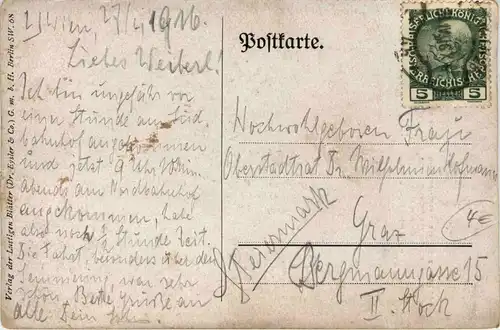 Wien, 27/I 1916.
Liebes Weiberl!
Ich bin ungefähr vor
einer Stunde am Süd
bahnhof angekommen
und jetzt 9 Uhr
abends am Nordbahnhof
angekommen, habe
also noch Stunde Zeit.
Die Fahrt, besonders über den
Semmering war sehr
schön. Bitte Grüße an
alle. Dein
Verlag der Lustigen Blätter (Dr. Eysler & Co.) G. m. b. H. Berlin SW. 68
Postkarte.
5 5
Hochwohlgeboren Frau
Oberstadtrat Dr. Wilhelmine Hofmann
Graz
Steiermark
Bergmanngasse 15
II. Stock
4€